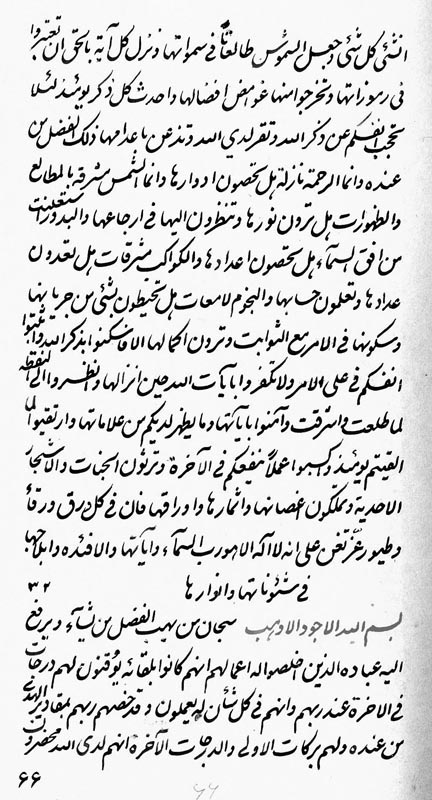 انشئ كل شئ و جعل الشموس طالعًا فى سمواتها و نزل كل آية بالحق ان تعتبروا
فى رموزاتها و تخرجوا منها غوامض افضالها و احدث كل ذكر يومئذ لئلا
تحجب انفسكم عن ذكر الله و تقر لدى الله و تذعن باعدامها ذلك الفضل من
عنده و انما الرحمة نازلة هل تحصون ادوارها و انما الشمس مشرقة بالمطالع
و الظهورات هل ترون نورها و تنظرون اليها فى ارجاعها و البدور استعلنت
من افق السمآء هل تحصون اعدادها و الكواكب مشرقات هل تعدون
عدادها و تعلمون حسابها و النجوم لامعات هل تحيطون بشئ من جريانها
و سكونها فى الامر مع الثوابت و ترون اكمالها الا فاسكنوا بذكر الله و اثبتوا
انفسكم فى على الامر و لا تكفروا بايآت الله حين انزالها و انظروا الى النقطة
لما طلعت و اشرقت و آمنوا باياتها و ما يظهر لديكم من علاماتها و ارتقبوا لما
القيتم يومئذ و اكسبوا عملاً ينفعكم فى الآخرة و ترثون الجنات و الاشجار
الاحدية و تملكون اغصانها و اثمارها و اوراقها فان فى كل ورق ورقآء
و طيور عز تغن على انه لا اله الا هو رب السمآء و اياتها و الافئده و ابلاجها
فى شئوناتها و انوارها
٣٢
بسم الله الاجود الاوهب سبحان من يهب الفضل من يشآء و يرفع
اليه عباده الذين اخلصوا له اعمالهم انهم كانوا بلقائه يوقنون لهم درجات
فى الاخرة عند ربهم و انهم فى كل شأن له يعملون و قد خصهم ربهم بمقادير الهدى
من عنده و لهم بركات الاولى و الدرجات الآخرة انهم لدى الله محضرون
٦٦
٦٦